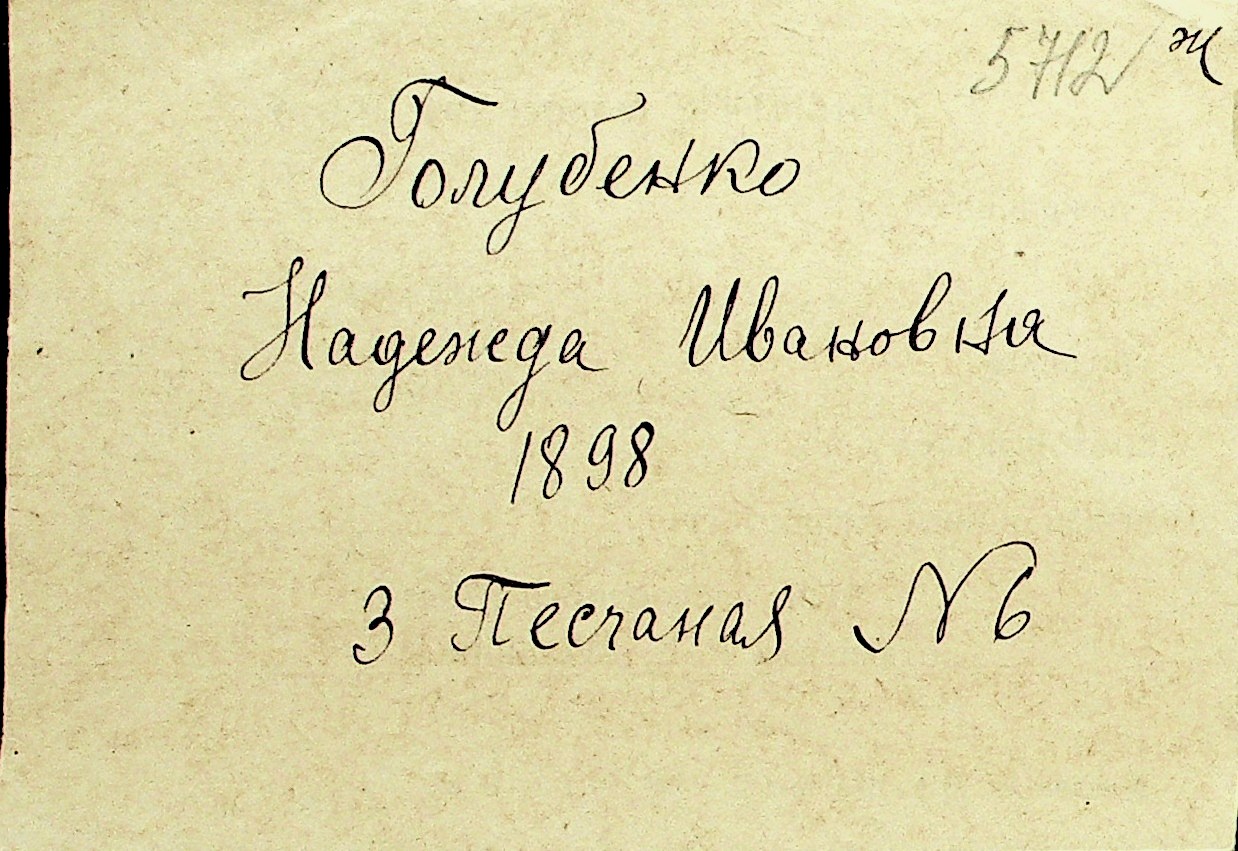 5712 ж
Голубенко
Надежда Ивановна
1898
3 Песчаная N 6